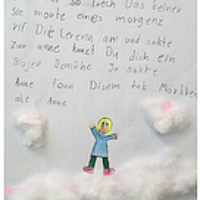 so frech Das keiner
Sie morte eines morgens
rif Die Lererin am und sakte
zur anne kanst Du dich ein
Bisjen Bemühe Ja sakte
Anne Fonn Disem tak Mochten
ale Anne